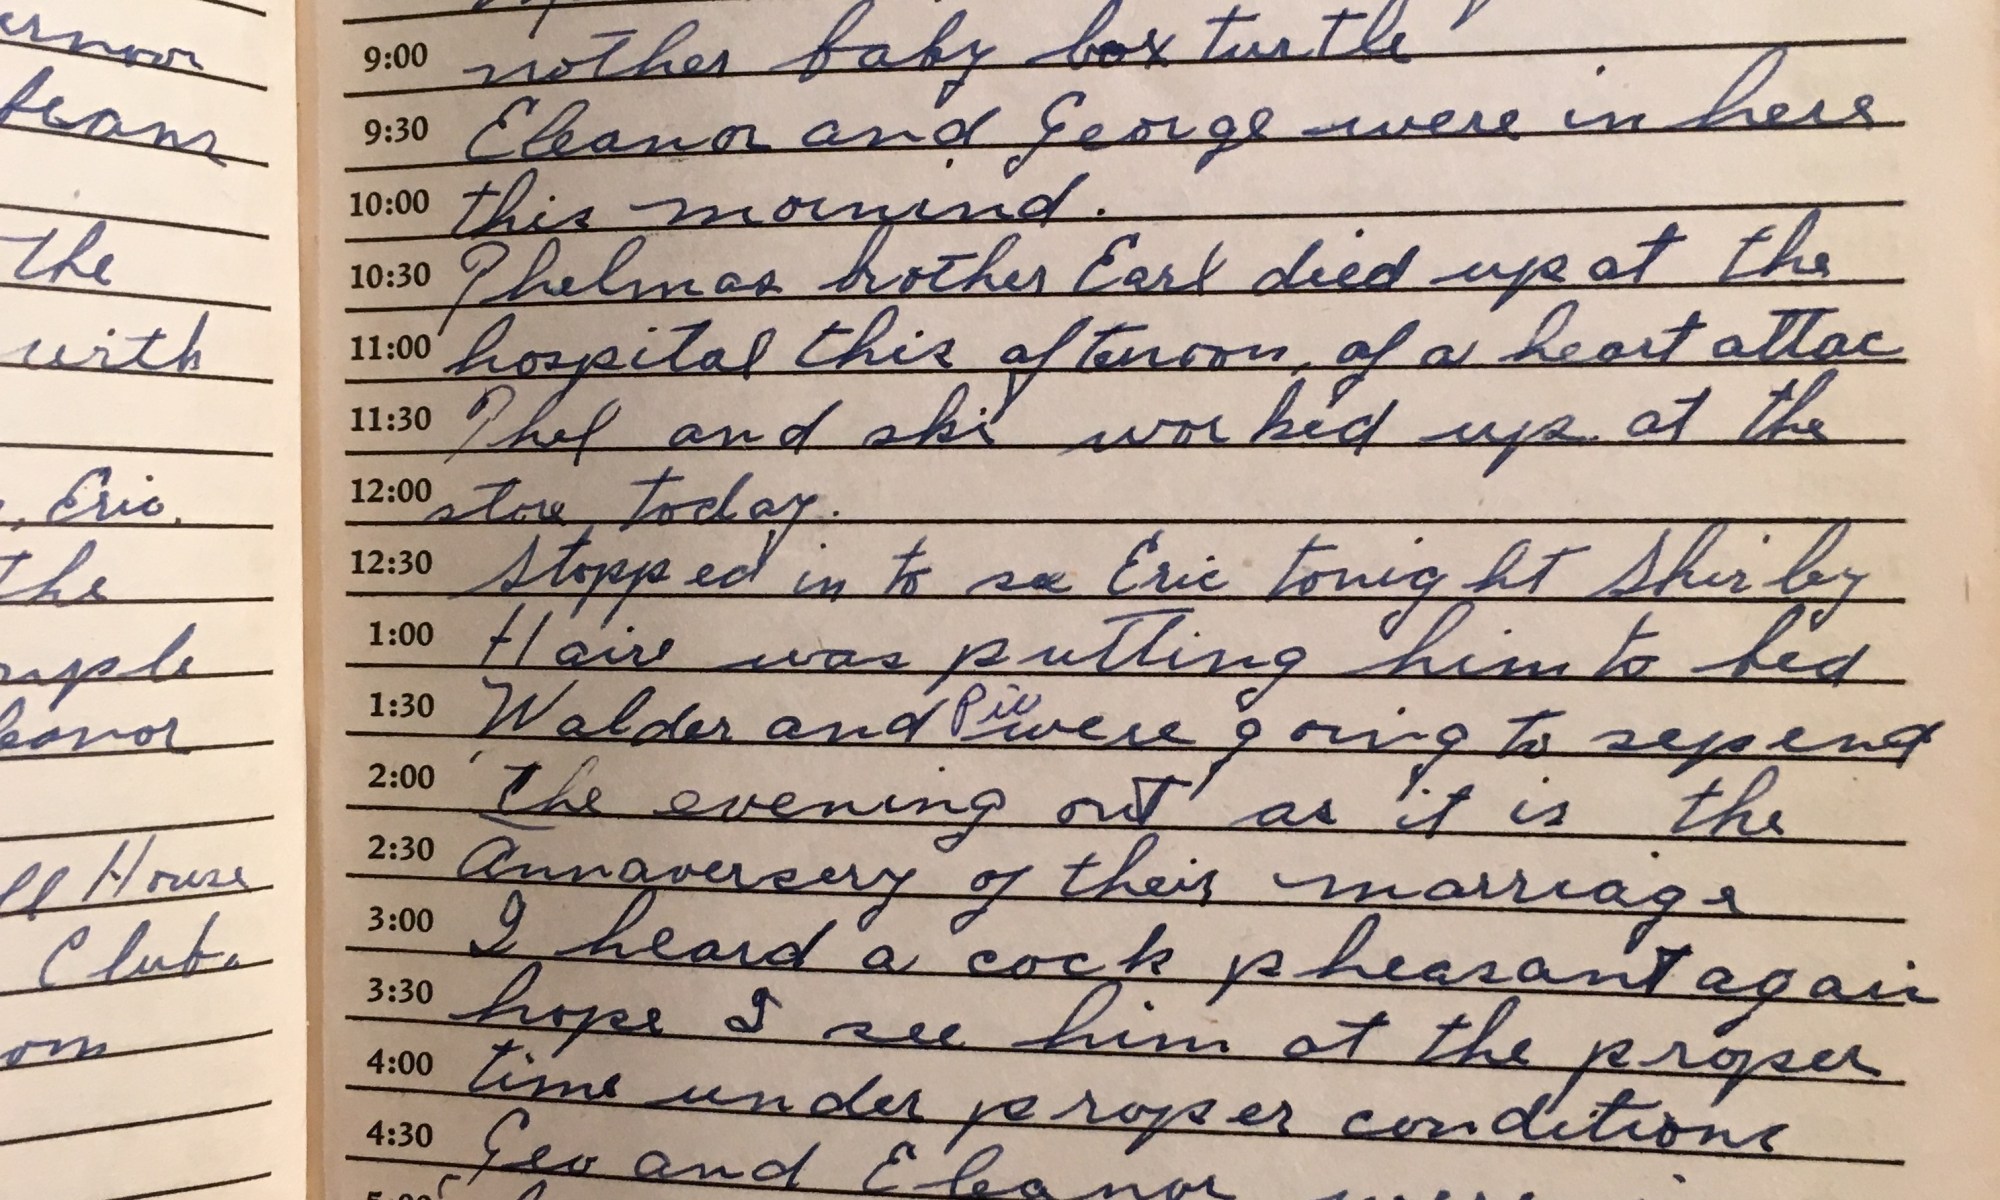 ernoon
beans
the
with
, Eric.
the
uple
leanor
ll House
Club.
om
9:00 nother baby box turtle
9:30 Eleanor and George were in here
10:00 this mornind.
10:30 Thelmas brother Earl died up at the
11:00 hospital this afternoon, of a heart attac
11:30 Thel and ski worked up at the
12:00 store today.
12:30 Stopped in to see Eric tonight Shirley
1:00 Haire was putting him to bed
1:30 Walder and were going to sepend
2:00 the evening out as it is the
2:30 Annaversery of their marriage
3:00 I heard a cock pheasant again
3:30 hope I see him at the proper
4:00 time under proper conditions
4:30 Geo and Eleanor were